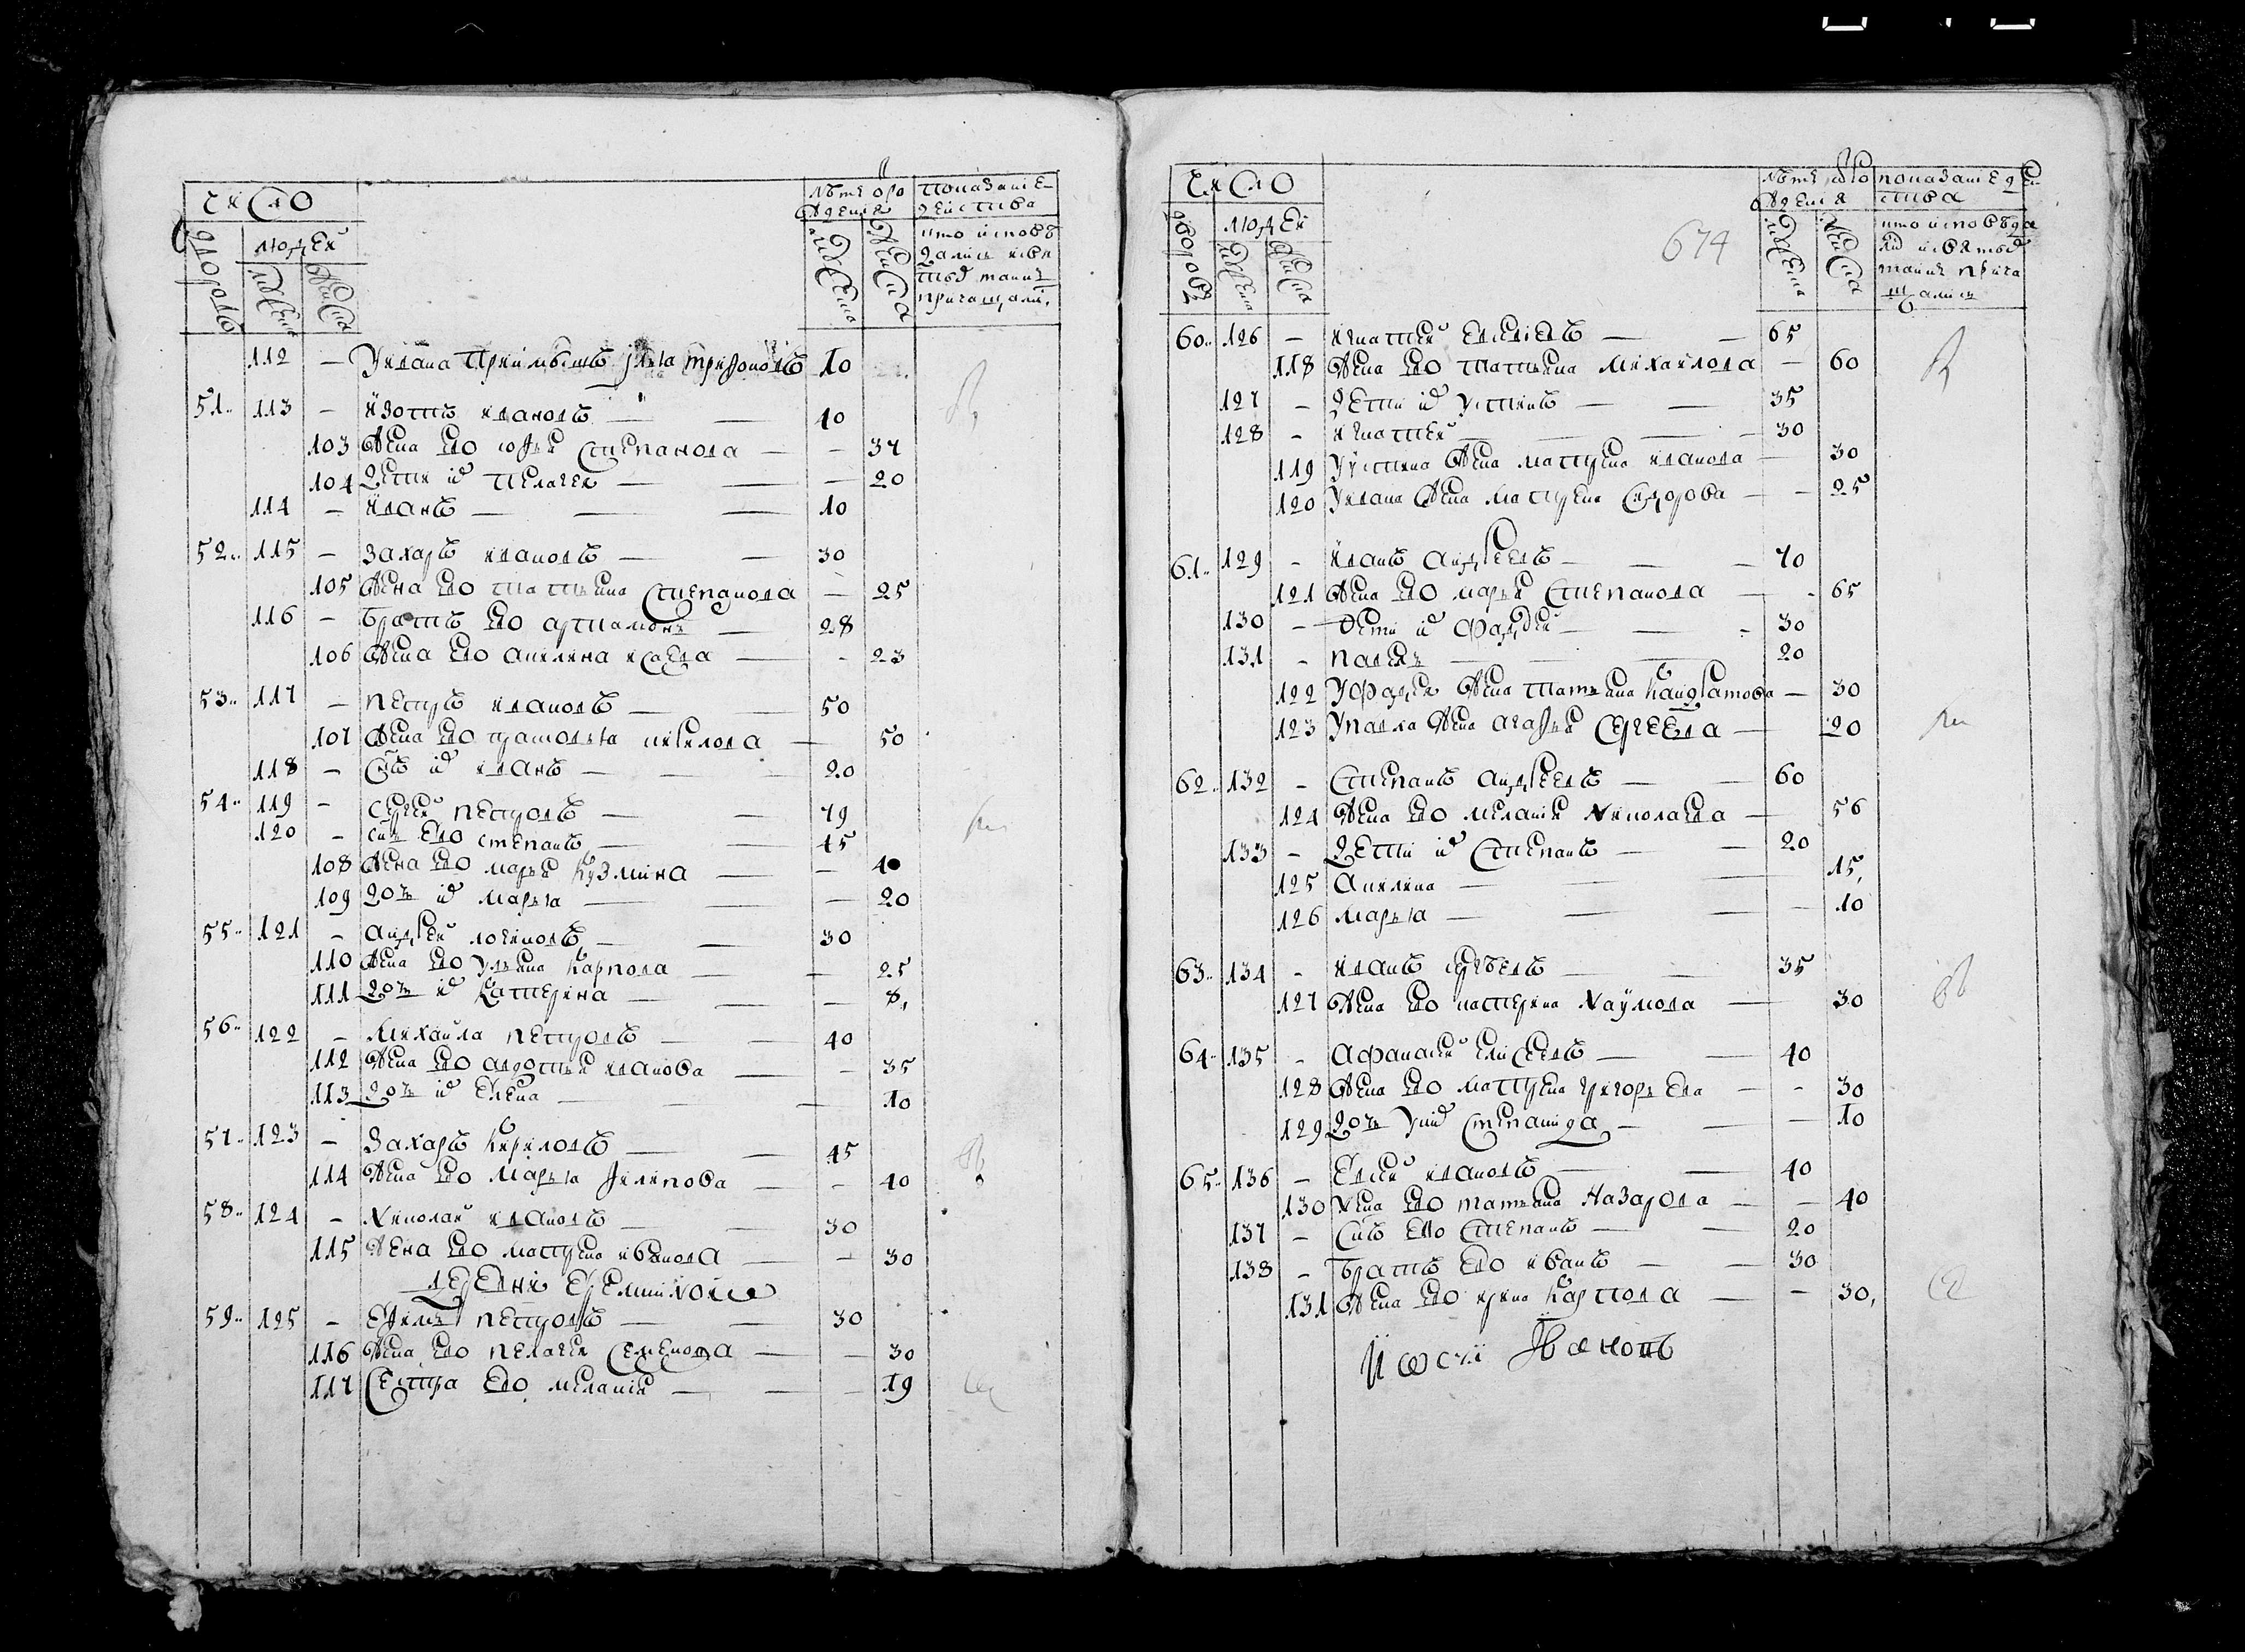 Число
Лѣта о рождения
Показание действа
дворовъ
людей
мужеска
женска
мужеска
женска
кто исповѣдались и святых таинъ причащались
112 — У Ивана приимышъ Трифоновъ 10
51 113 — Изотъ Ивановъ 40
103 Жена ево Софья Степанова — 37
104 Дети их Пелагея — 20
114 — Иванъ — 10
52 115 — Захаръ Ивановъ — 30
105 Жена ево Татьяна Степанова — 25
116 — Братъ ево Артамонъ — 28
106 Жена ево Акилина Исаева — 23
53 117 — Петръ Ивановъ — 50
107 Жена ево — 50
118 — Снъ их Иванъ — 20
54 119 — Сергей Петровъ — 79
120 — снъ ево Степанъ — 45
108 Жена ево Марья Кузмина — 40
109 Дочь их Марья — 20
55 121 — Андрей Логиновъ — 30
110 Жена ево Ульяна Карпова — 25
111 Дочь их Катерина — 8
56 122 — Михайла Петровъ — 40
112 Жена ево Авдотья Иванова — 35
113 Дочь их Елена — 10
57 123 — Захаръ Кириловъ — 45
114 Жена ево Марья Филипова — 40
58 124 — Николай Ивановъ — 30
115 Жена ево Матрена Иванова — 30
деревни
59 125 — Ефимъ Петровъ — 30
116 Жена ево Пелагея Семенова — 30
117 Сестра ево Мелания — 19
Число
Лѣта рождения
Показание действа
дворовъ
людей
мужеска
женска
674
мужеска
женска
кто исповѣдались и святых таинъ причащались
60 126 — Игнатей Елисеевъ — 65
118 Жена ево Татьяна Михайлова — 60
127 — Дети их Устинъ — 35
128 — Игнатей — 30
119 У Устина жена Матрена Иванова — 30
120 У Ивана жена Матрена Сидорова — 25
61 129 — Иванъ Андреевъ — 70
121 Жена ево Марья Степанова — 65
130 — Дети их Фаддей — 30
131 — Павелъ — 20
122 У Фадея жена Татьяна Кандратова — 30
123 У Павла жена Агафья Сергеева — 20
62 132 — Степанъ Андреевъ — 60
124 Жена ево Мелания Николаева — 56
133 — Дети их Степанъ — 20
125 Акилина — 15
126 Марья — 10
63 134 — Иванъ Сергѣевъ — 35
127 Жена ево Катерина Наумова — 30
64 135 — Афанасей Елисеевъ — 40
128 Жена ево Матрена Григорьева — 30
129 Дочь у них Степанида — 10
65 136 — Елисей Ивановъ — 40
130 Жена ево Татьяна Назарова — 40
137 — Снъ ево Степанъ — 20
138 — Братъ ево Иванъ — 30
131 Жена ево Ирина Карпова — 30